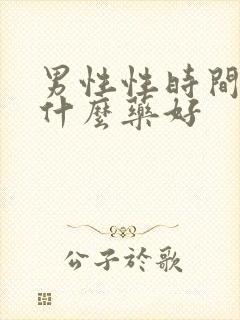 男性性時間
什麼藥好
公子於歌